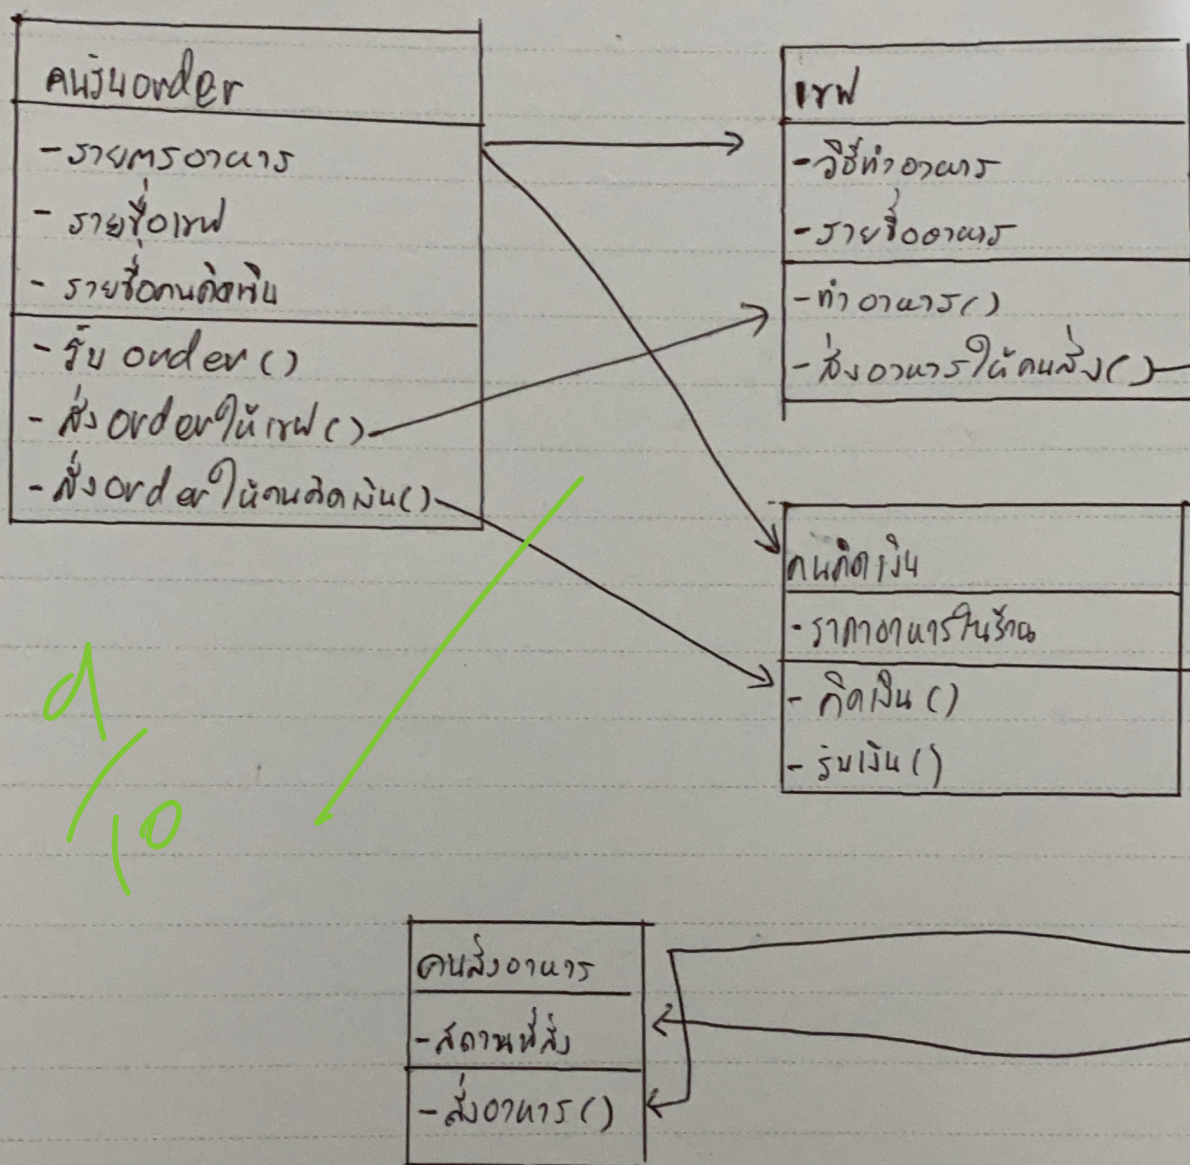 คนรับorder
-รายการอาหาร
- รายชื่อเชฟ
- รายชื่อคนคิดเงิน
- รับ order ()
- ส่ง orderให้เชฟ ()
- ส่ง order ให้คนคิดเงิน()
เชฟ
-วิธีทำอาหาร
-รายชื่ออาหาร
-ทำอาหาร()
- ส่งอาหารให้คนส่ง()
คนคิดเงิน
- ราคาอาหารในร้าน
- คิดเงิน ()
- รับเงิน ()
9/10
คนส่งอาหาร
-สถานที่ส่ง
-ส่งอาหาร()